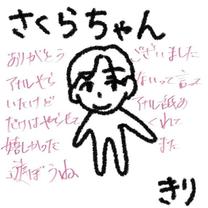 さくらちゃん
ありがとう ございました
アイルやら ないって言って
いたけど アイル誘の
だけはやらせて くれて
嬉しかった また
遊ぼうね
きり